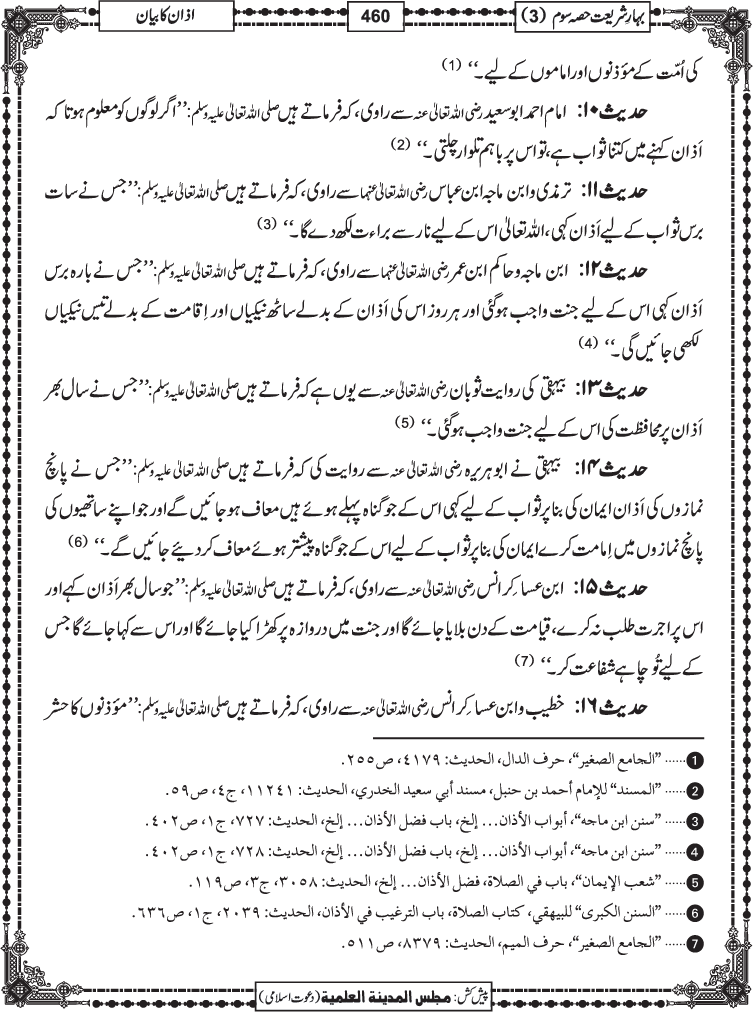 بہارِ شریعت حصہ سوم (3)
460
اذان کا بیان
کی اُمّت کے مؤذنوں اور اماموں کے لیے۔‘‘ (1)
حدیث ۱۰: امام احمد ابو سعید رضی اللہ تعالیٰ عنہ سے راوی، کہ فرماتے ہیں صلی اللہ تعالیٰ علیہ وسلم: ’’اگر لوگوں کو معلوم ہوتا کہ
اَذان کہنے میں کتنا ثواب ہے، تو اس پر باہم تلوار چلتی۔‘‘ (2)
حدیث ۱۱: ترمذی و ابن ماجہ ابن عباس رضی اللہ تعالیٰ عنہما سے راوی، کہ فرماتے ہیں صلی اللہ تعالیٰ علیہ وسلم: ’’جس نے سات
برس ثواب کے لیے اَذان کہی، اللہ تعالیٰ اس کے لیے نار سے براءت لکھ دے گا۔‘‘ (3)
حدیث ۱۲: ابن ماجہ و حاکم ابن عمر رضی اللہ تعالیٰ عنہما سے راوی، کہ فرماتے ہیں صلی اللہ تعالیٰ علیہ وسلم: ’’جس نے بارہ برس
اَذان کہی اس کے لیے جنت واجب ہوگئی اور ہر روز اس کی اَذان کے بدلے ساٹھ نیکیاں اور اِقامت کے بدلے تیس نیکیاں
لکھی جائیں گی۔‘‘ (4)
حدیث ۱۳: بیہقی کی روایت ثوبان رضی اللہ تعالیٰ عنہ سے یوں ہے کہ فرماتے ہیں صلی اللہ تعالیٰ علیہ وسلم: ’’جس نے سال بھر
اَذان پر محافظت کی اس کے لیے جنت واجب ہوگئی۔‘‘ (5)
حدیث ۱۴: بیہقی نے ابوہریرہ رضی اللہ تعالیٰ عنہ سے روایت کی کہ فرماتے ہیں صلی اللہ تعالیٰ علیہ وسلم: ’’جس نے پانچ
نمازوں کی اَذان ایمان کی بنا پر ثواب کے لیے کہی اس کے جو گناہ پہلے ہوئے ہیں معاف ہو جائیں گے اور جو اپنے ساتھیوں کی
پانچ نمازوں میں اِمامت کرے ایمان کی بنا پر ثواب کے لیے اس کے جو گناہ پیشتر ہوئے معاف کر دیئے جائیں گے۔‘‘ (6)
حدیث ۱۵: ابن عساکر انس رضی اللہ تعالیٰ عنہ سے راوی، کہ فرماتے ہیں صلی اللہ تعالیٰ علیہ وسلم: ’’جو سال بھر اَذان کہے اور
اس پر اجرت طلب نہ کرے، قیامت کے دن بلایا جائے گا اور جنت میں دروازہ پر کھڑا کیا جائے گا اور اس سے کہا جائے گا جس
کے لیے تُو چاہے شفاعت کر۔‘‘ (7)
حدیث ۱۶: خطیب و ابن عساکر انس رضی اللہ تعالیٰ عنہ سے راوی، کہ فرماتے ہیں صلی اللہ تعالیٰ علیہ وسلم: ’’مؤذنوں کا حشر
1 ...... "الجامع الصغير"، حرف الدال، الحديث: ٤١٧٩، ص٢٥٥.
2 ...... "المسند" للإمام أحمد بن حنبل، مسند أبي سعيد الخدري، الحديث: ١١٢٤١، ج٤، ص٥٩.
3 ...... "سنن ابن ماجه"، أبواب الأذان... إلخ، باب فضل الأذان... إلخ، الحديث: ٧٢٧، ج١، ص٤٠٢.
4 ...... "سنن ابن ماجه"، أبواب الأذان... إلخ، باب فضل الأذان... إلخ، الحديث: ٧٢٨، ج١، ص٤٠٢.
5 ...... "شعب الإيمان"، باب في الصلاة، فضل الأذان... إلخ، الحديث: ٣٠٥٨، ج٣، ص١١٩.
6 ...... "السنن الكبرى" للبيهقي، كتاب الصلاة، باب الترغيب في الأذان، الحديث: ٢٠٣٩، ج١، ص٦٣٦.
7 ...... "الجامع الصغير"، حرف الميم، الحديث: ٨٣٧٩، ص٥١١.
پیش کش: مجلس المدينة العلمية (دعوت اسلامی)